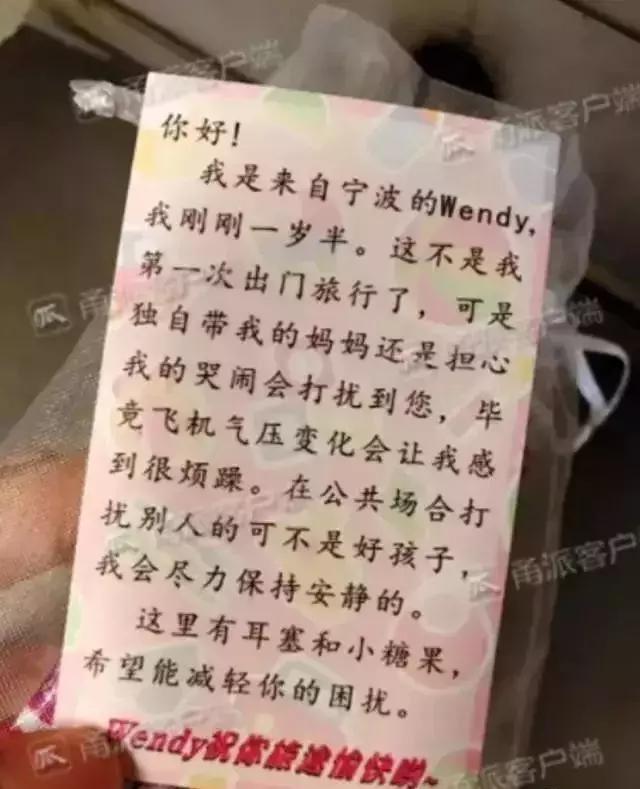 你好！
我是来自宁波的Wendy,
我刚刚一岁半。这不是我
第一次出门旅行了，可是
独自带我的妈妈还是担心
我的哭闹会打扰到您，毕
竟飞机气压变化会让我感
到很烦躁。在公共场合打
扰别人的可不是好孩子，
我会尽力保持安静的。
这里有耳塞和小糖果，
希望能减轻你的困扰。
Wendy祝你旅途愉快哟~
甬派客户端
甬派客户端
甬派客户端
甬派客户端
甬派客户端
甬派客户端
甬派客户端